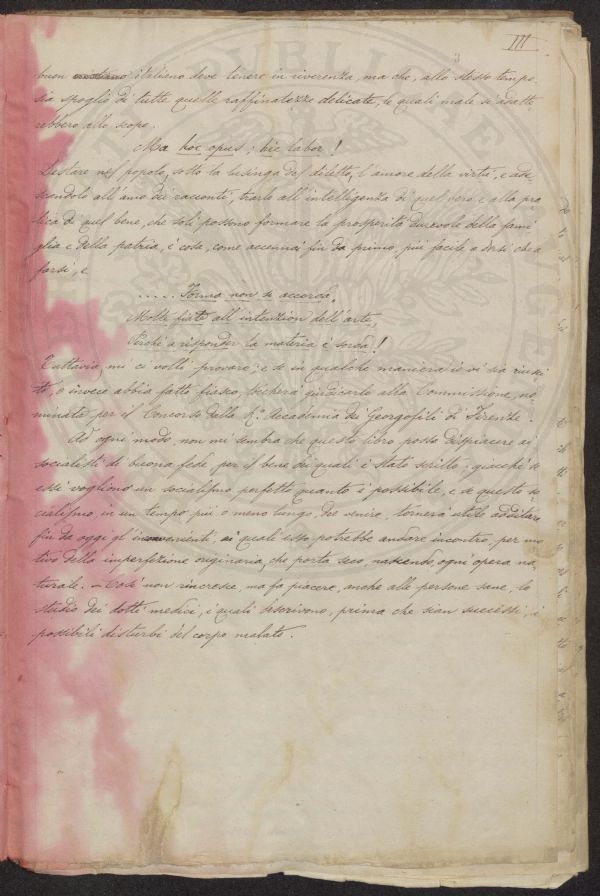 III
buon italiano deve tenere in riverenza, ma che, allo stesso tempo,
sia spoglio di tutte quelle raffinatezze delicate, le quali male si adatte
rebbero allo scopo.
Ma hoc opus; hic labor!
Destare nel popolo, sotto la lusinga del diletto, l'amore della virtù, e ade
scandolo all'amo dei racconti, trarlo all'intelligenza di quel vero e alla pra
tica di quel bene, che soli possono formare la prosperità durevole della fami
glia e della patria, è cosa, come accennai fin da primo, più facile a dirsi che a
farsi, e
..... Forma non si accorda,
Molte fiate all'intenzion dell'arte,
Perchè a risponder la materia è sorda!
Tuttavia mi ci volli provare; e se in qualche maniera io vi sia riusci
to, o invece abbia fatto fiasco, toccherà giudicarlo alla Commissione, no
minata per il Concorso dalla R.a Accademia dei Georgofili di Firenze.
Ad ogni modo non mi sembra che questo libro possa dispiacere ai
socialisti di buona fede, per il bene dei quali è stato scritto; giacchè se
essi vogliono un socialismo perfetto quanto è possibile, e se questo so
cialismo, in un tempo più o meno lungo, ha venire, tornerà utile additare
fin da oggi gl'inconvenienti, ai quali esso potrebbe andare incontro, per mo
tivo della imperfezione originaria, che porta seco, nascendo, ogni opera na
turale. – Così non rincresce, ma fa piacere, anche alle persone sane, lo
studio dei dotti medici, i quali descrivono, prima che sian successi, i
possibili disturbi del corpo malato.